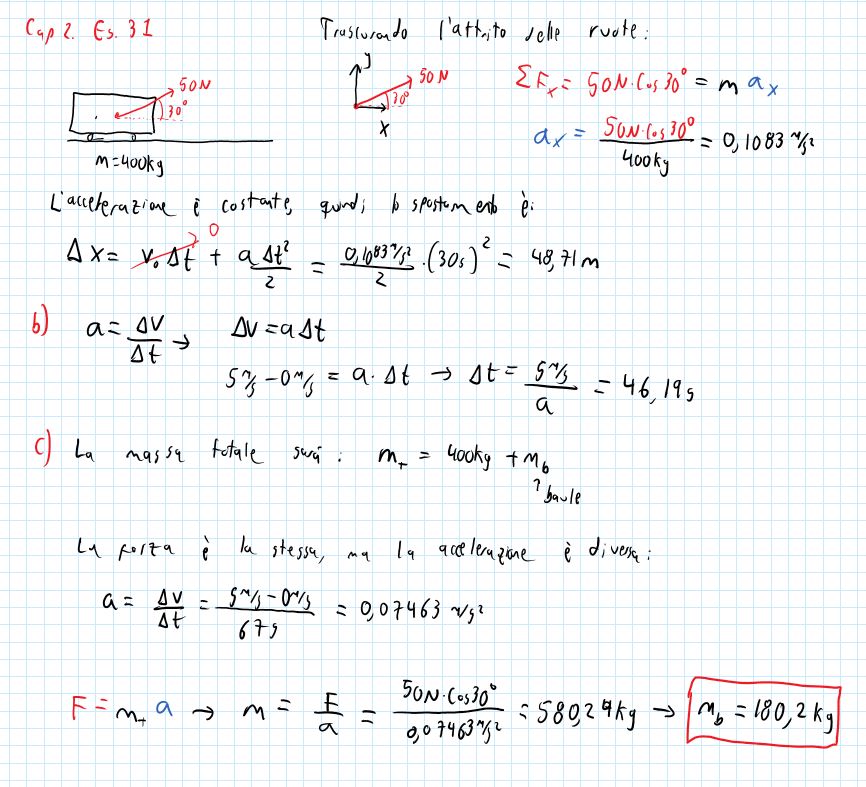 Cap 2. Es. 31
Trascurando l'attrito delle ruote:
50N
30°
m=400kg
y
50N
30°
x
ΣFx = 50N·Cos30° = m ax
ax = 50N·Cos30° / 400kg = 0,1083 m/s²
L'accelerazione è costante, quindi lo spostamento è:
Δx = v₀Δt + aΔt²/2 = 0,1083 m/s² / 2 · (30s)² = 48,71 m
0
b) a = Δv/Δt → Δv = aΔt
5 m/s - 0 m/s = a · Δt → Δt = 5 m/s / a = 46,19 s
c) La massa totale sarà: m_t = 400kg + m_b
? baule
La forza è la stessa, ma la accelerazione è diversa:
a = Δv/Δt = 5 m/s - 0 m/s / 67s = 0,07463 m/s²
F = m_t a → m = F/a = 50N·Cos30° / 0,07463 m/s² = 580,24 kg → m_b = 180,2 kg